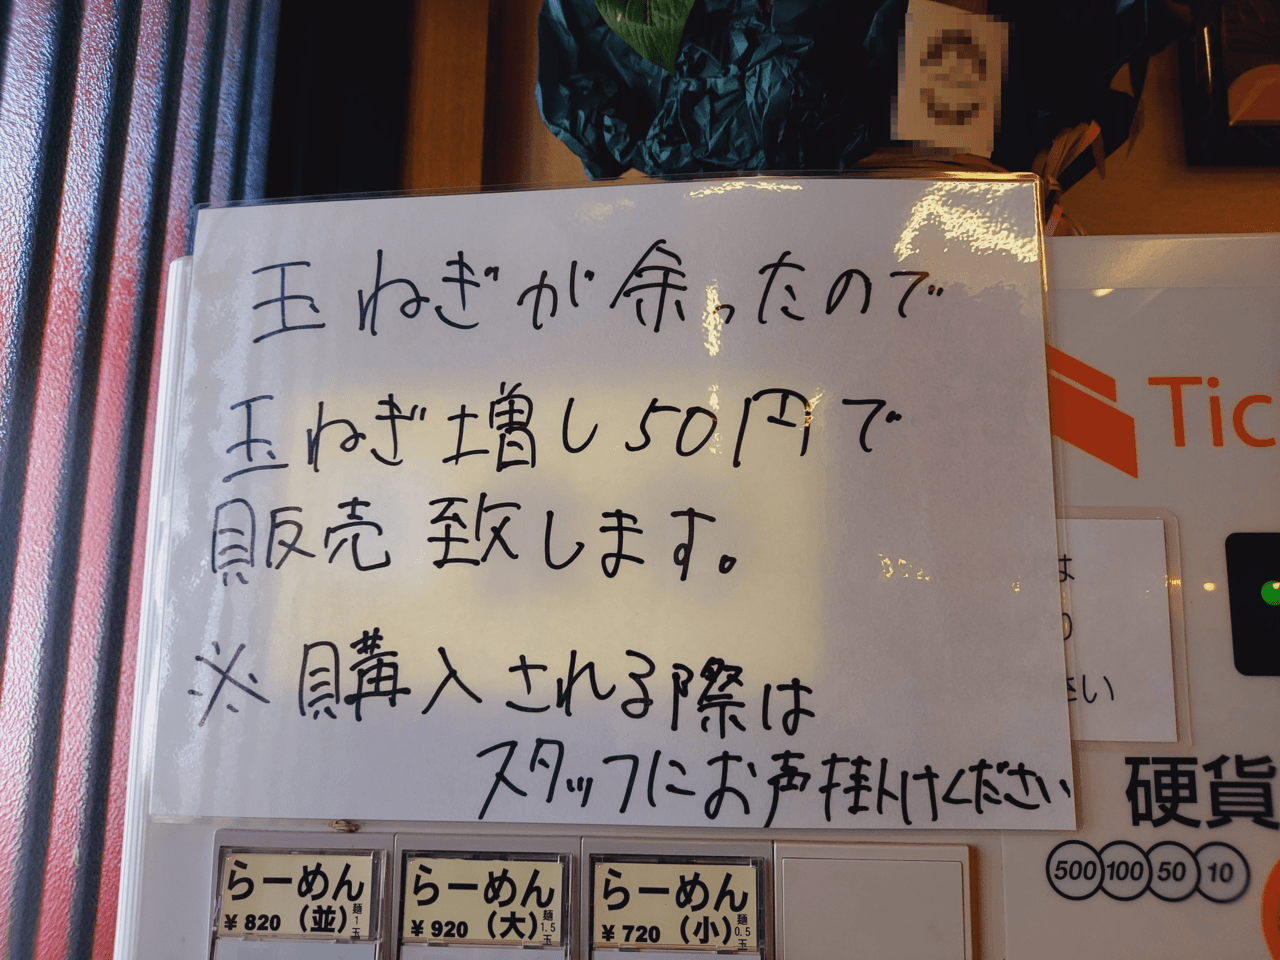 玉ねぎが余ったので
玉ねぎ増し50円で
販売致します。
※購入される際は
スタッフにお声掛けください
Tic
は
い
硬貨
500 100 50 10
らーめん
¥820 (並) 麺1玉
らーめん
¥920 (大) 麺1.5玉
らーめん
¥720 (小) 麺0.5玉